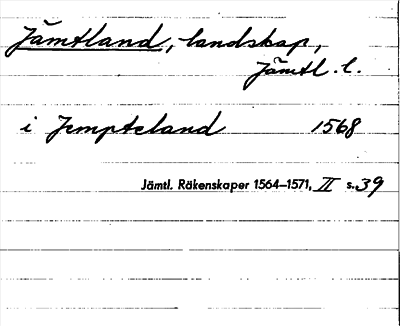 Jämtland, landskap,
Jämtl. l.
i Jempteland 1568
Jämtl. Räkenskaper 1564–1571, II s. 39